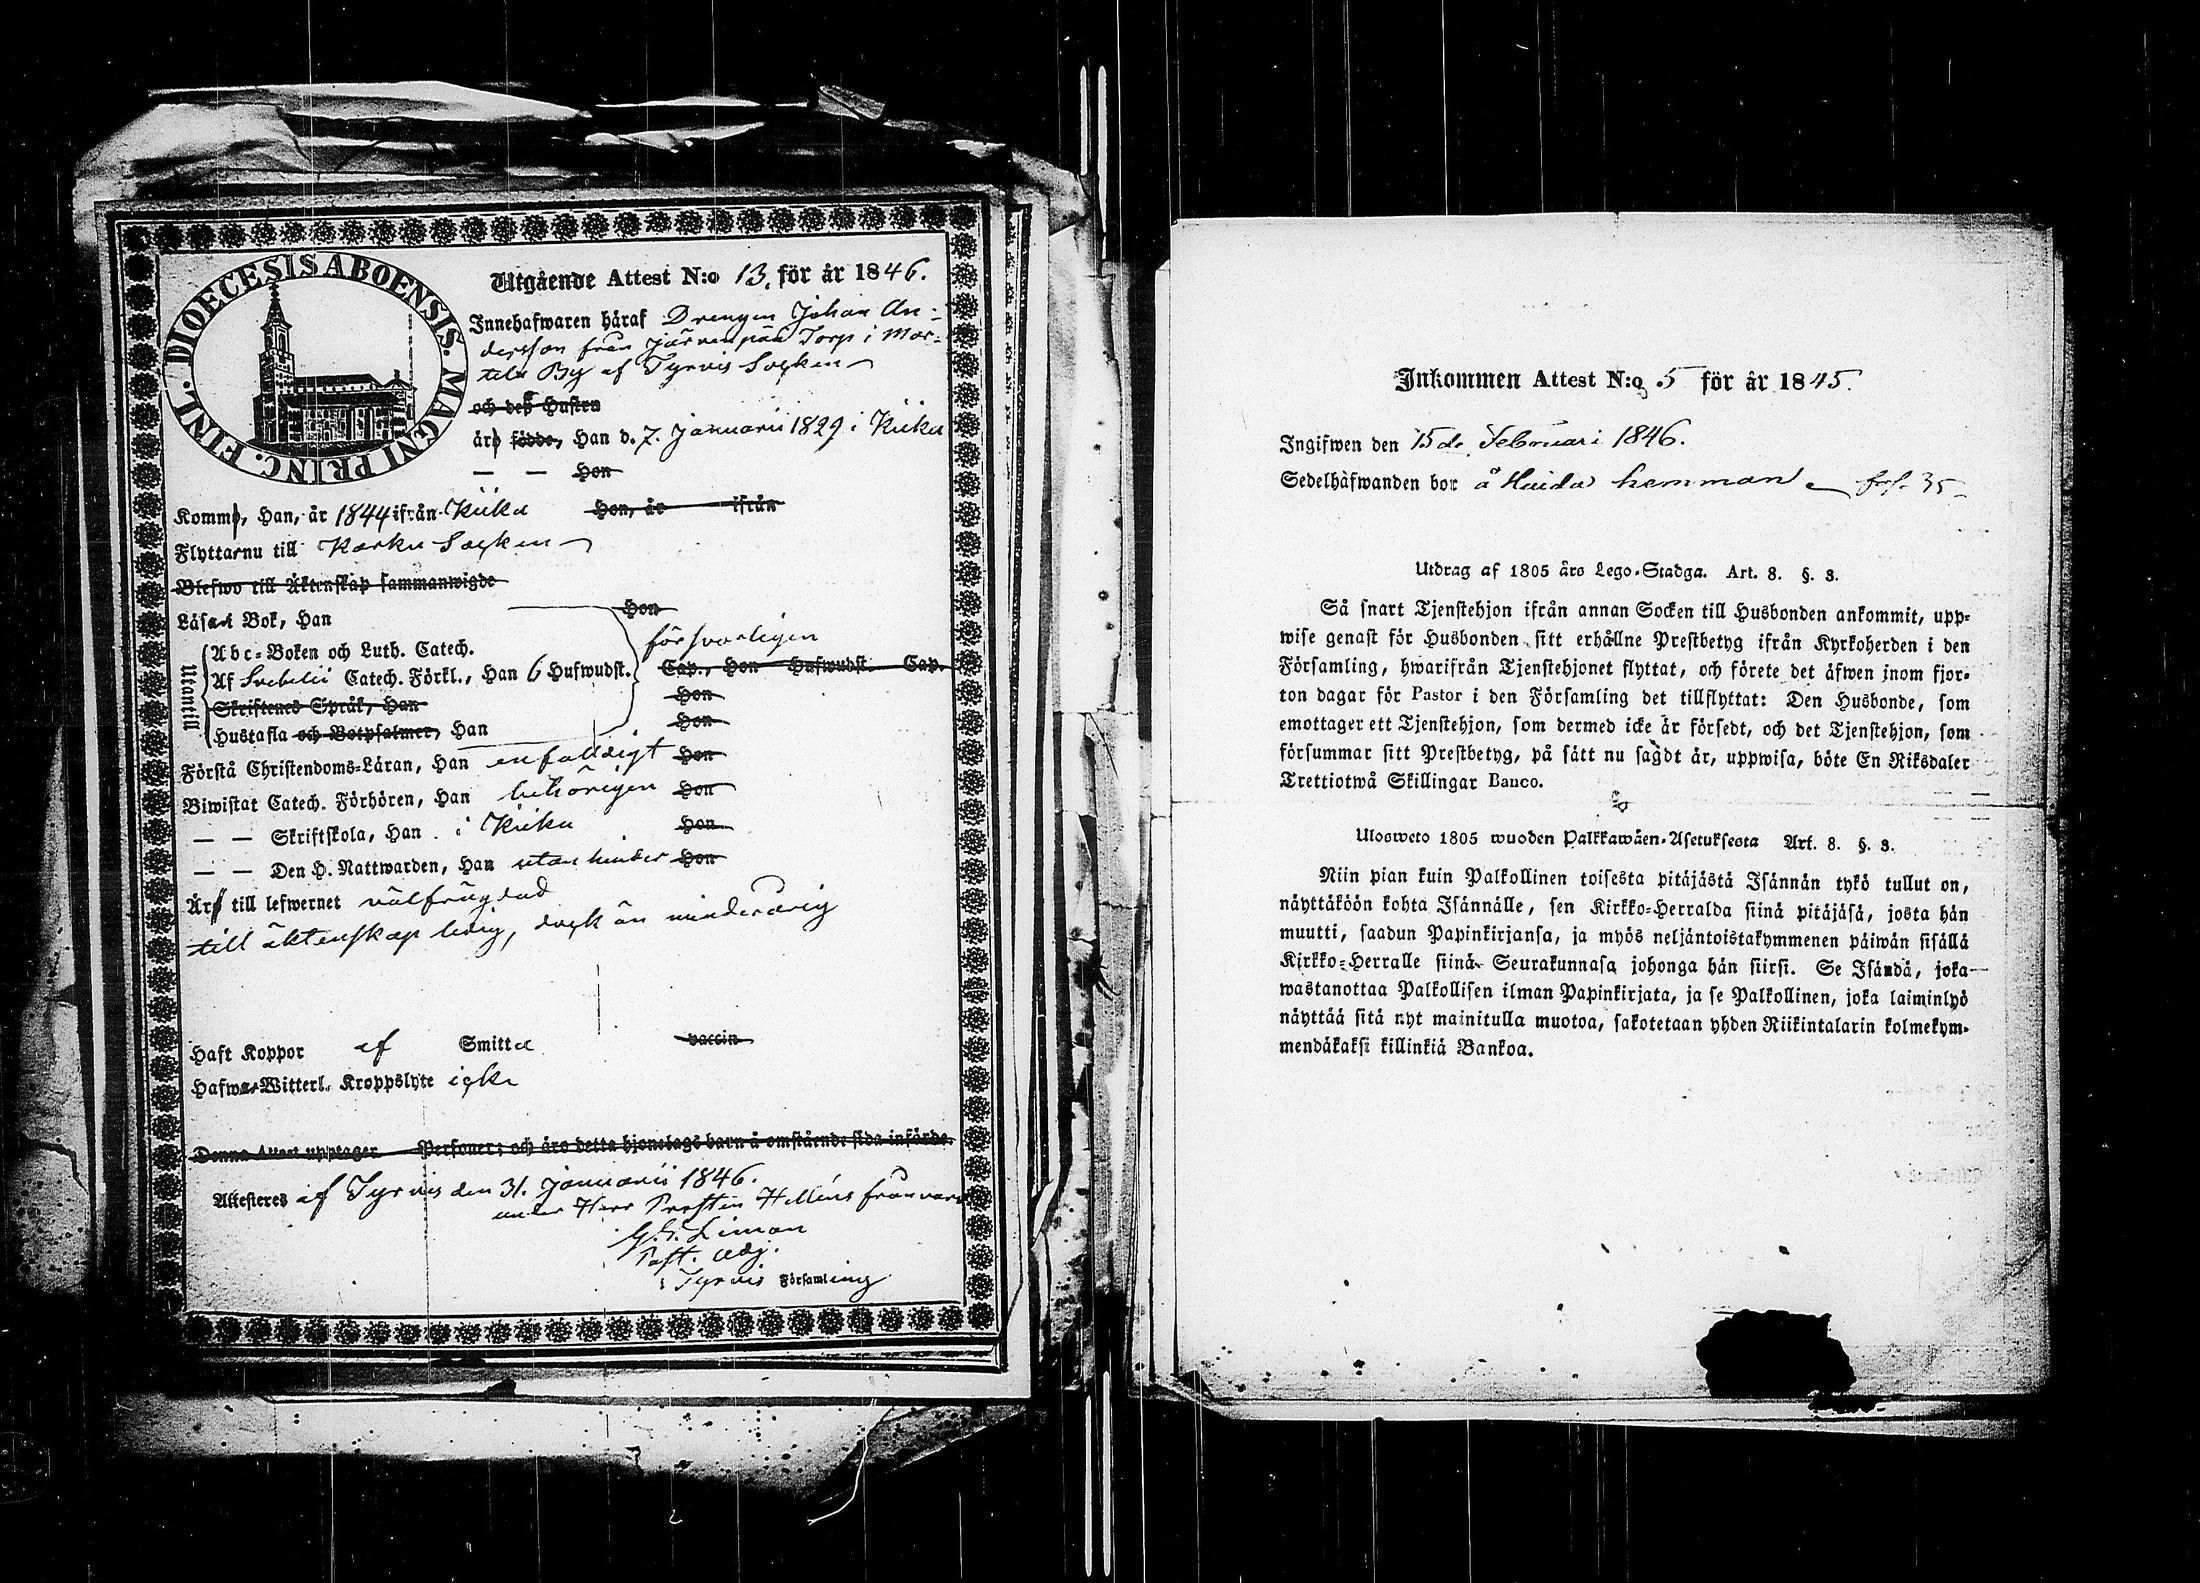 DIOECESIS ABOENSIS. MAGNI PRINC. FINL.
Utgående Attest N:o 13. för år 1846.
Innehafwaren häraf Drengen Johan An-
dersson från Järvenpää Torp i Mar-
tila By af Tyrvis Socken
och deß Hustru
äro födde, Han d. 7. Januarii 1829 i Kiika
— — Hon
Kommo, Han, år 1844 ifrån Kiika Hon, år ifrån
Flyttar nu till Karku Socken
Blefwo till Äktenskap sammanwigde
Läser i Bok, Han Hon
Utantill
Abc-Boken och Luth. Catech. försvarligen
Af Svebelii Catech. Förkl., Han 6 Hufwudst. Cap., Hon Hufwudst. Cap.
Skriftenes Språk, Han Hon
Hustafla och Botpsalmer, Han Hon
Förstå Christendoms-Läran, Han enfaldigt Hon
Biwistat Catech. Förhören, Han behörigen Hon
— — Skriftskola, Han i Kiika Hon
— — Den H. Nattwarden, Han utan hinder Hon
Är till lefwernet välfrägdad
till äktenskap ledig, dock än minderårig
Haft Koppor af Smitta vaccin
Hafwer Witterl. Kroppslyte icke
Denna Attest upptager Personer; och äro detta hjonelags barn å omstående sida införde.
Attesteres af Tyrvis den 31. Januarii 1846.
under Herr Prosten Helléns frånvaro
G. Liman
Past. Adj.
i Tyrvis Församling
Inkommen Attest N:o 5 för år 1845.
Ingifwen den 15de Februari 1846.
Sedelhafwanden bor å Haida hemman fol. 35
Utdrag af 1805 års Lego-Stadga. Art. 8. §. 3.
Så snart Tjenstehjon ifrån annan Socken till Husbonden ankommit, upp-
wise genast för Husbonden sitt erhållne Prestbetyg ifrån Kyrkoherden i den
Församling, hwarifrån Tjenstehjonet flyttat, och förete det äfwen inom fjor-
ton dagar för Pastor i den Församling det tillflyttat: Den Husbonde, som
emottager ett Tjenstehjon, som dermed icke är försedt, och det Tjenstehjon, som
försummar sitt Prestbetyg, på sätt nu sagdt är, uppwisa, böte En Riksdaler
Trettiotwå Skillingar Banco.
Ulosweto 1805 wuoden Palkkawäen-Asetuksesta Art. 8. §. 3.
Niin pian kuin Palkollinen toisesta pitäjästä Isännän tykö tullut on,
näyttäköön kohta Isännälle, sen Kirkko-Herralda siinä pitäjäsä, josta hän
muutti, saadun Papinkirjansa, ja myös neljäntoistakymmenen päiwän sisällä
Kirkko-Herralle siinä Seurakunnasa johonga hän siirsi. Se Isändä, joka
wastanottaa Palkollisen ilman Papinkirjata, ja se Palkollinen, joka laiminlyö
näyttää sitä nyt mainitulla muotoa, sakotetaan yhden Riikintalarin kolmekym-
mendäkaksi killinkiä Bankoa.